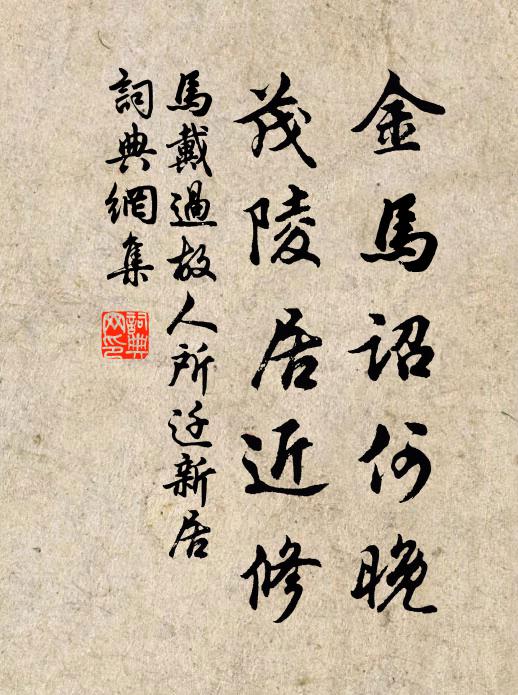 金馬詔何晚
茂陵居近修
馬戴過故人所迁新居
詞典網集
詞典网印